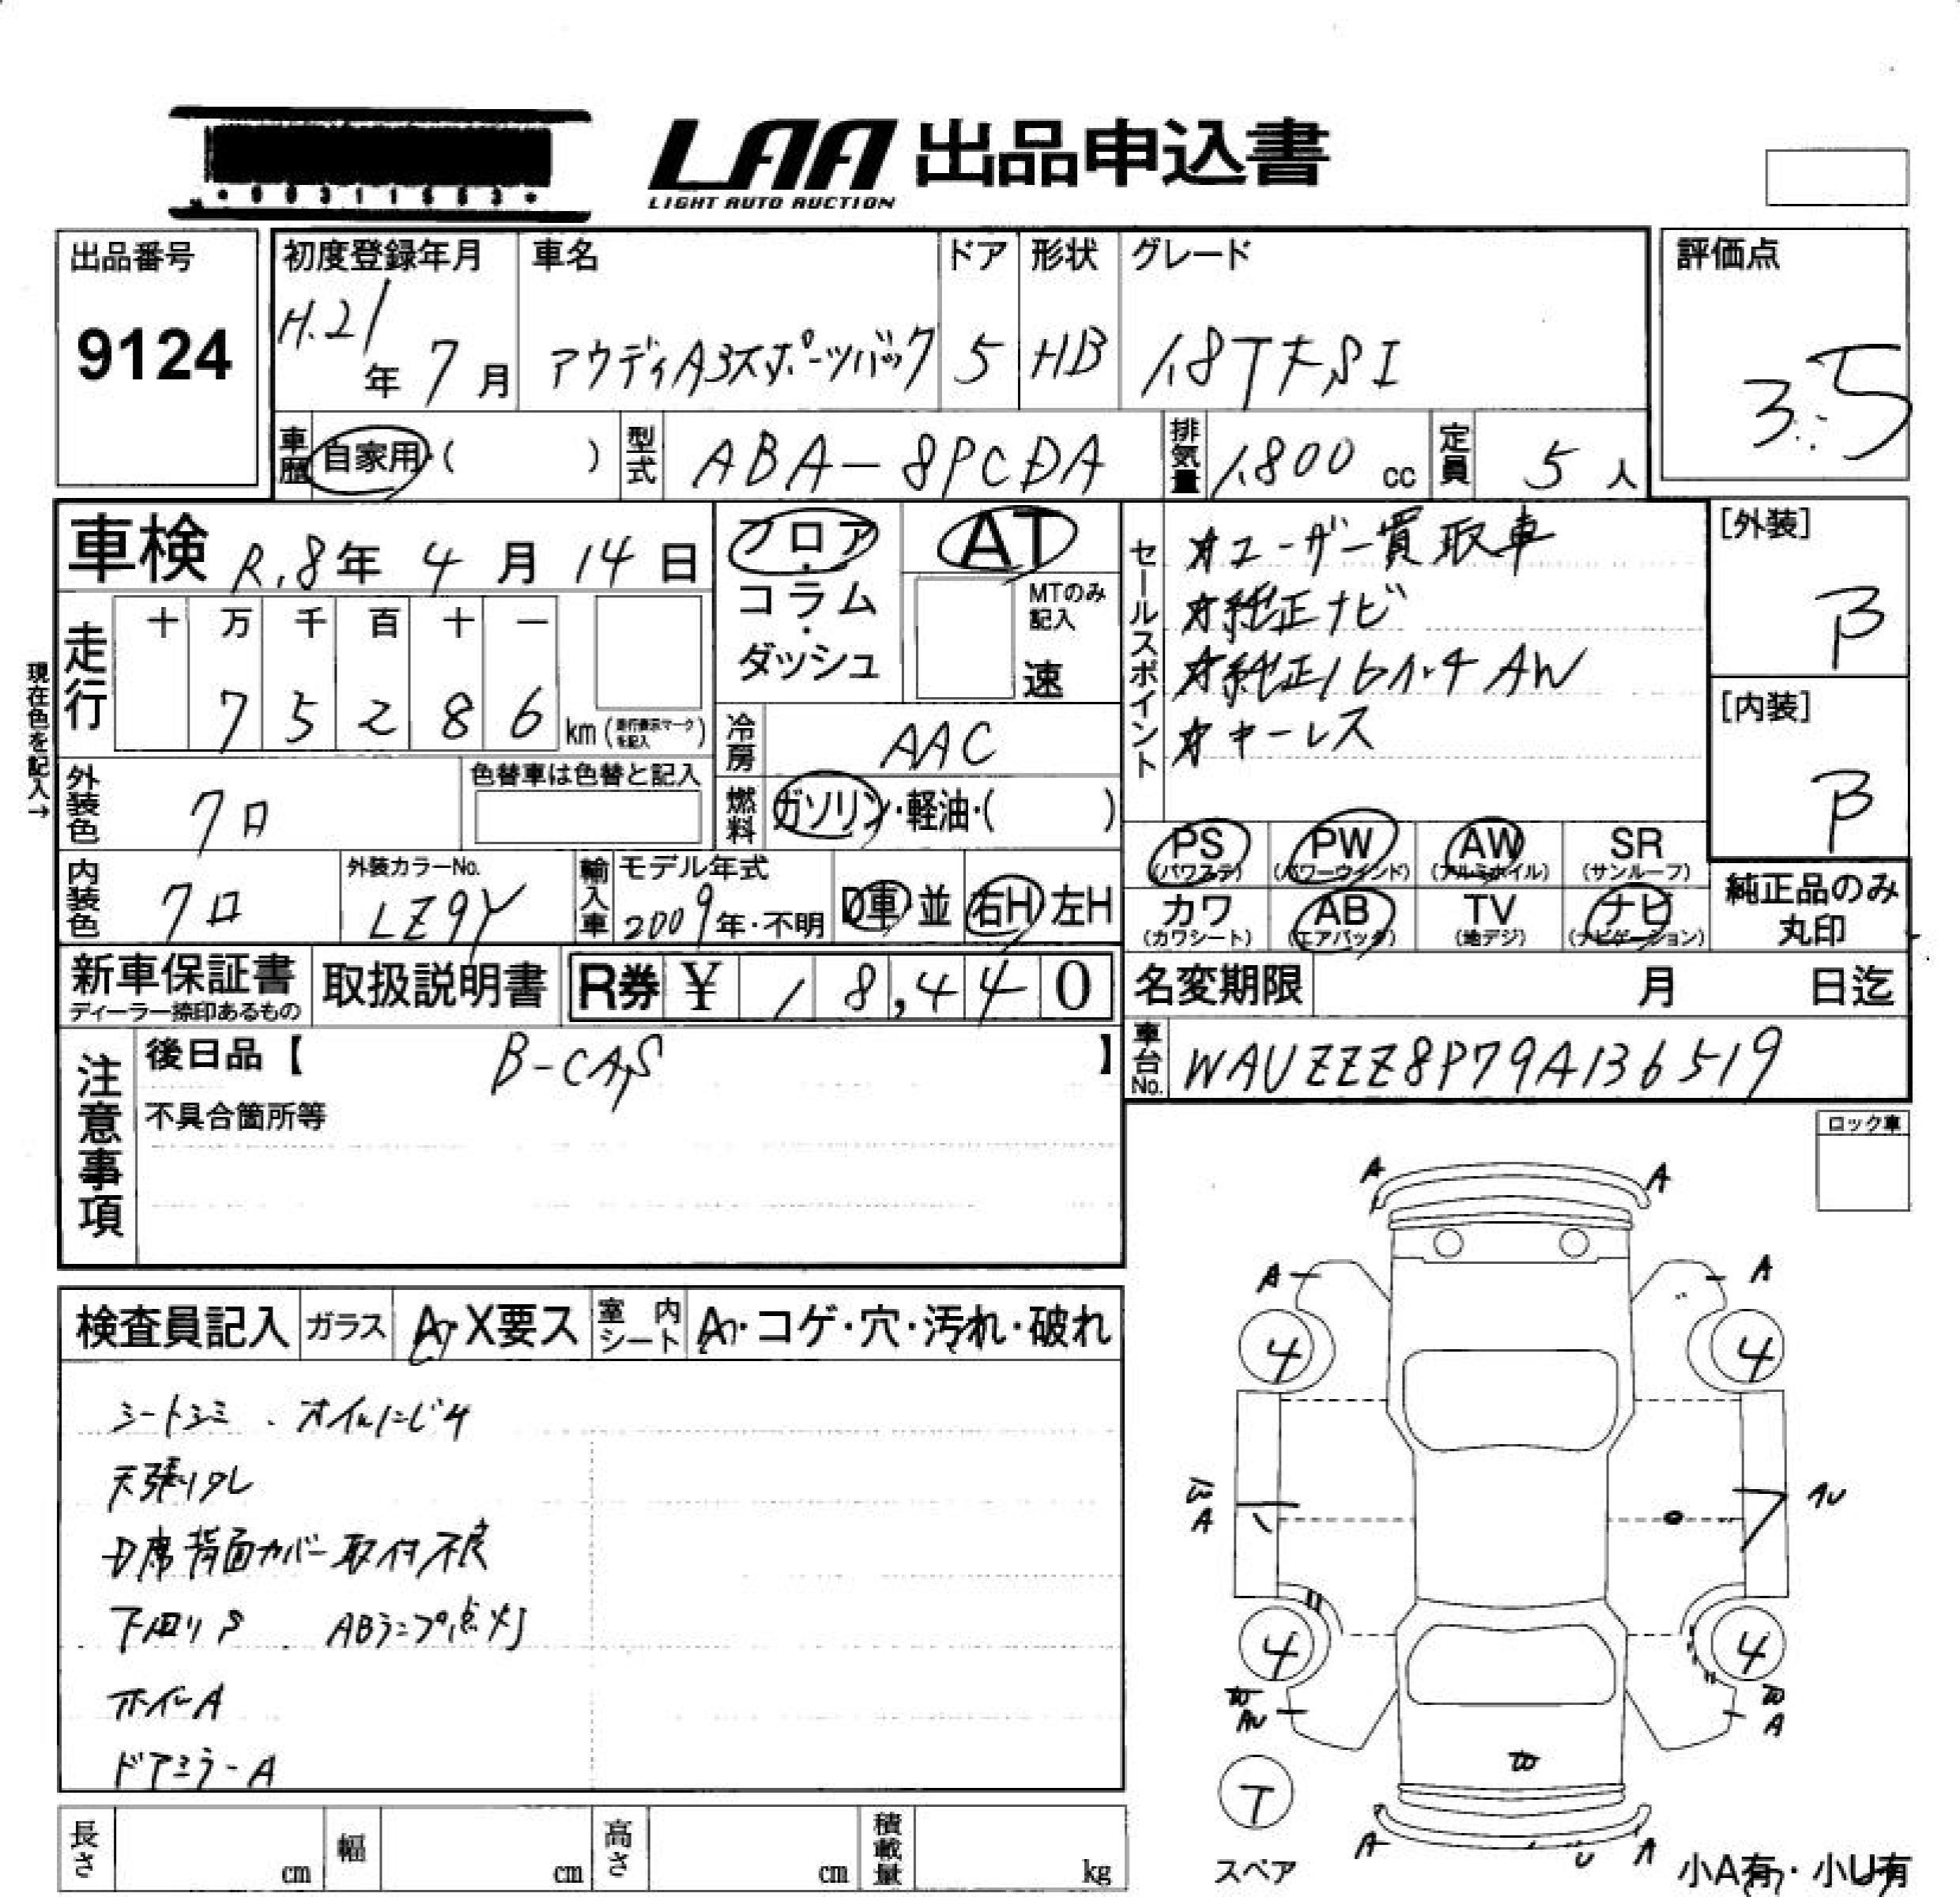 LAA 出品申込書
LIGHT AUTO AUCTION
出品番号
9124
初度登録年月
H.21年 7月
車名
アウディA3スポーツバック
ドア
5
形状
HB
グレード
1.8TFSI
評価点
3.5
車歴 自家用・( )
型式 ABA-8PCDA
排気量 1,800 cc
定員 5 人
車検 R.8年 4月 14日
フロア・コラム・ダッシュ
AT
MTのみ記入
速
セールスポイント
☆ユーザー買取車
☆純正ナビ
☆純正16インチAW
☆キーレス
[外装]
B
[内装]
B
現在色を記入→
走行
十 万 千 百 十 一
7 5 2 8 6 km (走行表示マークを記入)
冷房 AAC
燃料 ガソリン・軽油・( )
外装色 クロ
色替車は色替と記入
内装色 クロ
外装カラーNo.
LZ9Y
輸入車
モデル年式
2009年・不明
D車 並
右H 左H
PS (パワステ)
PW (パワーウインド)
AW (アルミホイル)
SR (サンルーフ)
カワ (カワシート)
AB (エアバッグ)
TV (地デジ)
ナビ (ナビゲーション)
純正品のみ丸印
新車保証書
ディーラー捺印あるもの
取扱説明書
R券 ¥ 1 8,4 4 0
名変期限 月 日迄
車台No. WAUZZZ8P79A136519
注意事項
後日品【 B-CAS 】
不具合箇所等
ロック車
検査員記入
ガラス A・X要ス
室内シート A・コゲ・穴・汚れ・破れ
シートシミ . オイルにじみ
天張りタレ
D席背面カバー取付不良
下回りS . ABランプ点灯
ホイルA
ドアミラーA
A A
A A
4 4
A
AU
4 4
AU
A
T
スペア
A U A
小A有・小U有
長さ cm
幅 cm
高さ cm
積載量 kg